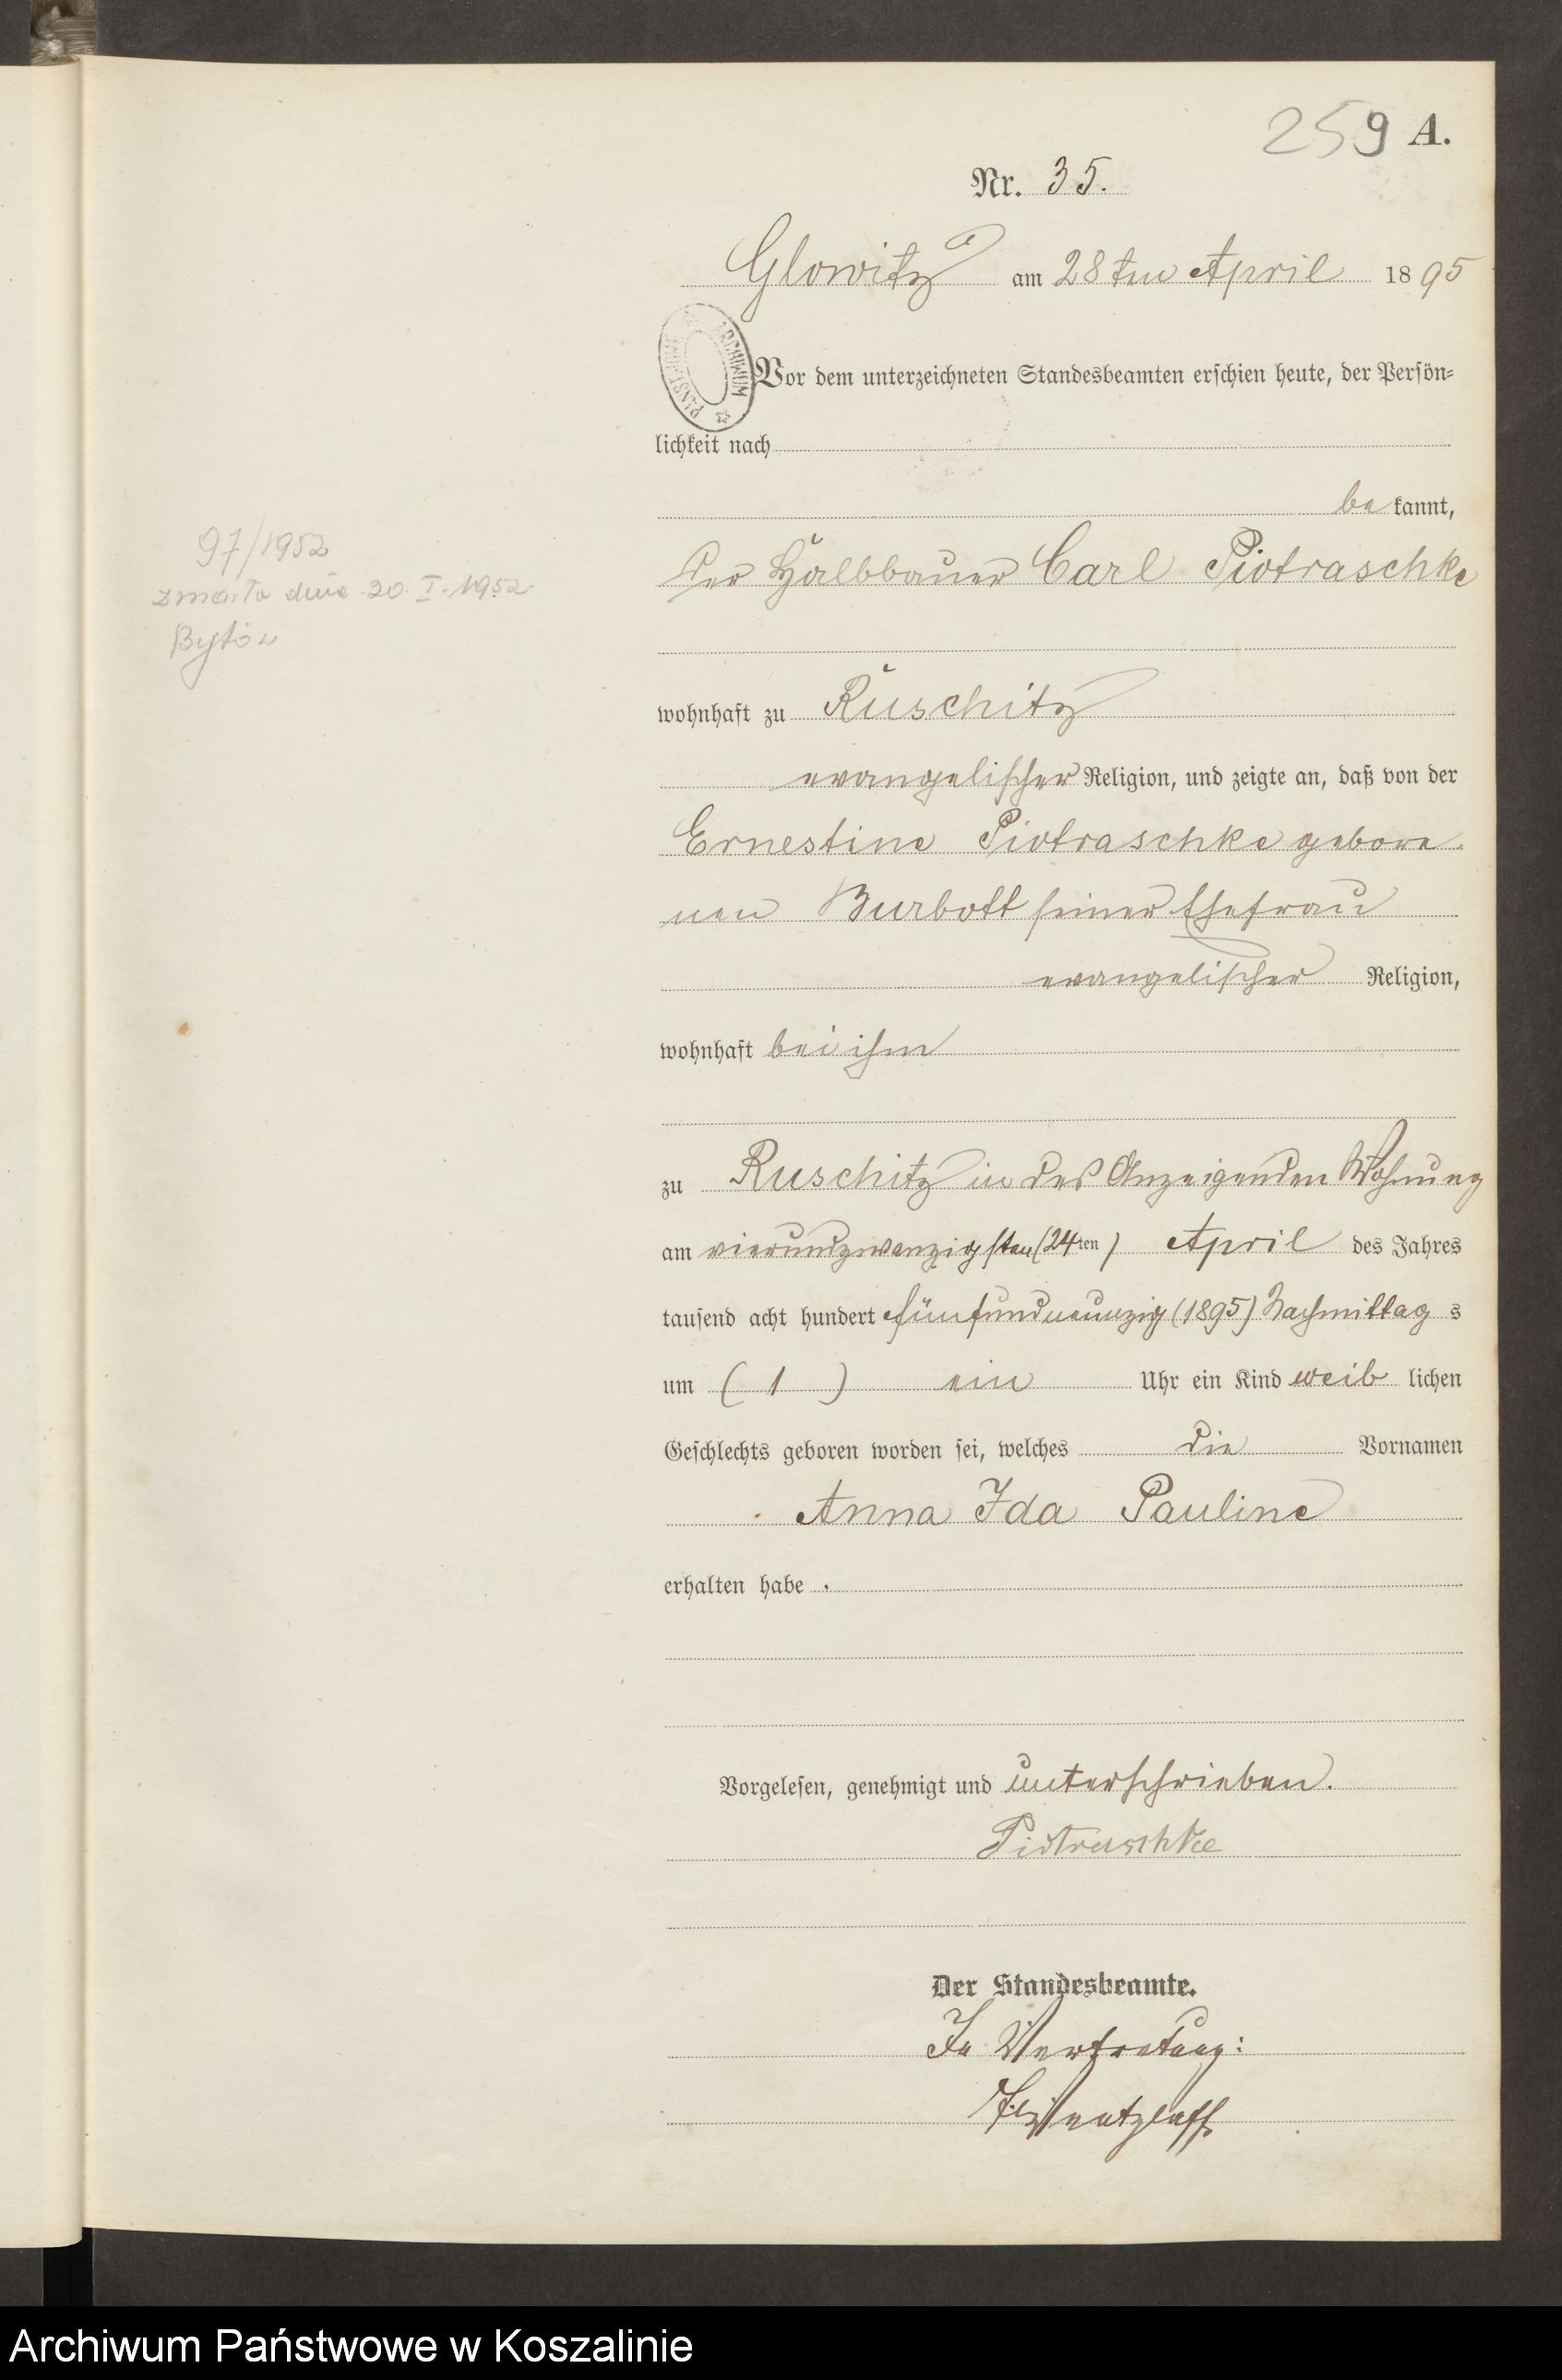 259 A.
Nr. 35.
Glowitz am 28ten April 1895
ARCHIWUM
Vor dem unterzeichneten Standesbeamten erschien heute, der Persön-
lichkeit nach
be kannt,
der Halbbauer Carl Piotraschke
97/1952
zmarła dnia 20. I. 1952
Bytów
wohnhaft zu Ruschitz
evangelischer Religion, und zeigte an, daß von der
Ernestine Piotraschke gebore-
nen Burbott seiner Ehefrau
evangelischer Religion,
wohnhaft bei ihm
zu Ruschitz in des Anzeigenden Wohnung
am vierundzwanzigsten (24ten) April des Jahres
tausend acht hundert fünfundneunzig (1895) Nachmittag s
um ( 1 ) ein Uhr ein Kind weib lichen
Geschlechts geboren worden sei, welches die Vornamen
Anna Ida Pauline
erhalten habe .
Vorgelesen, genehmigt und unterschrieben.
Piotraschke
Der Standesbeamte.
In Vertretung:
Archiwum Państwowe w Koszalinie